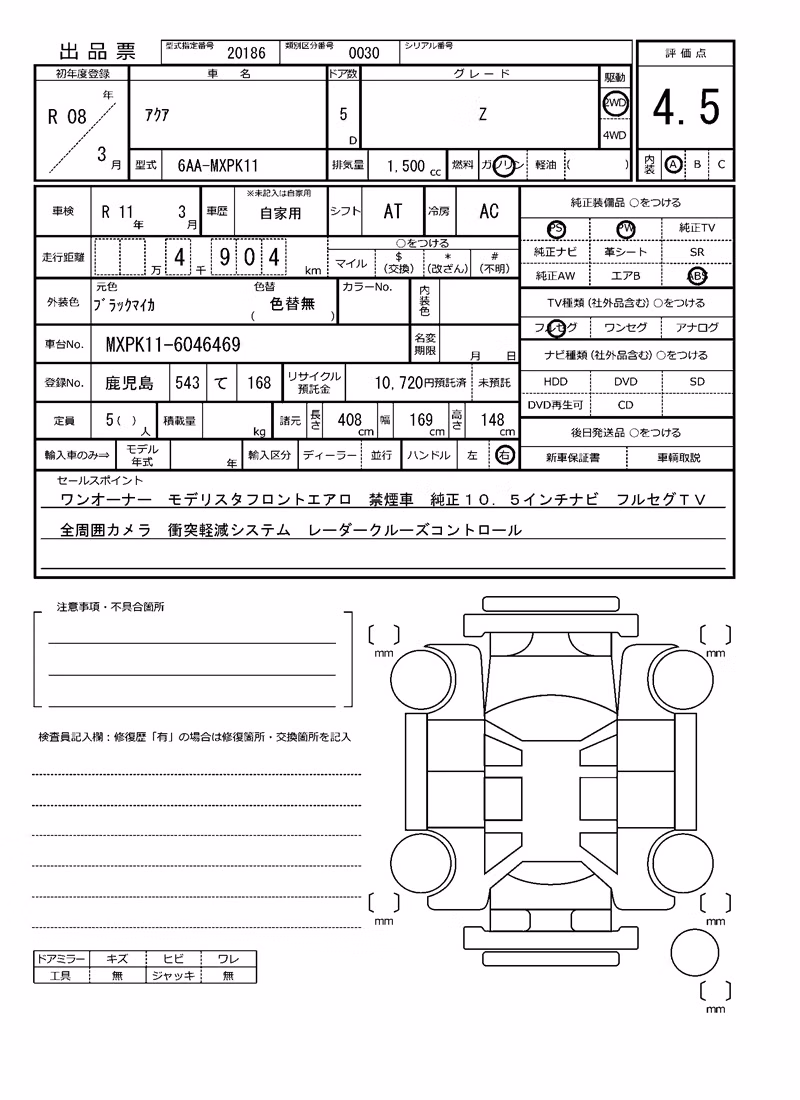 出品票 型式指定番号 20186 類別区分番号 0030 シリアル番号
評価点
4.5
内装 A B C
初年度登録 車名 ドア数 グレード 駆動
R 08 年 3 月 アクア 5 D Z 2WD 4WD
型式 6AA-MXPK11 排気量 1,500 cc 燃料 ガソリン 軽油 ( )
車検 R 11 年 3 月 車歴 ※未記入は自家用 自家用 シフト AT 冷房 AC
走行距離 万 4 千 9 0 4 km
○をつける
マイル $(交換) *(改ざん) #(不明)
外装色 元色 ブラックマイカ 色替 ( 色替無 ) カラーNo. 内装色
車台No. MXPK11-6046469 名変期限 月 日
登録No. 鹿児島 543 て 168 リサイクル預託金 10,720円預託済 未預託
定員 5 ( ) 人 積載量 kg 諸元 長さ 408 cm 幅 169 cm 高さ 148 cm
輸入車のみ⇒ モデル年式 年 輸入区分 ディーラー 並行 ハンドル 左 右
純正装備品 ○をつける
PS PW 純正TV
純正ナビ 革シート SR
純正AW エアB ABS
TV種類(社外品含む) ○をつける
フルセグ ワンセグ アナログ
ナビ種類(社外品含む) ○をつける
HDD DVD SD
DVD再生可 CD
後日発送品 ○をつける
新車保証書 車輌取説
セールスポイント
ワンオーナー モデリスタフロントエアロ 禁煙車 純正10.5インチナビ フルセグTV
全周囲カメラ 衝突軽減システム レーダークルーズコントロール
注意事項・不具合箇所
検査員記入欄:修復歴「有」の場合は修復箇所・交換箇所を記入
ドアミラー キズ ヒビ ワレ
工具 無 ジャッキ 無
mm
mm
mm
mm
mm